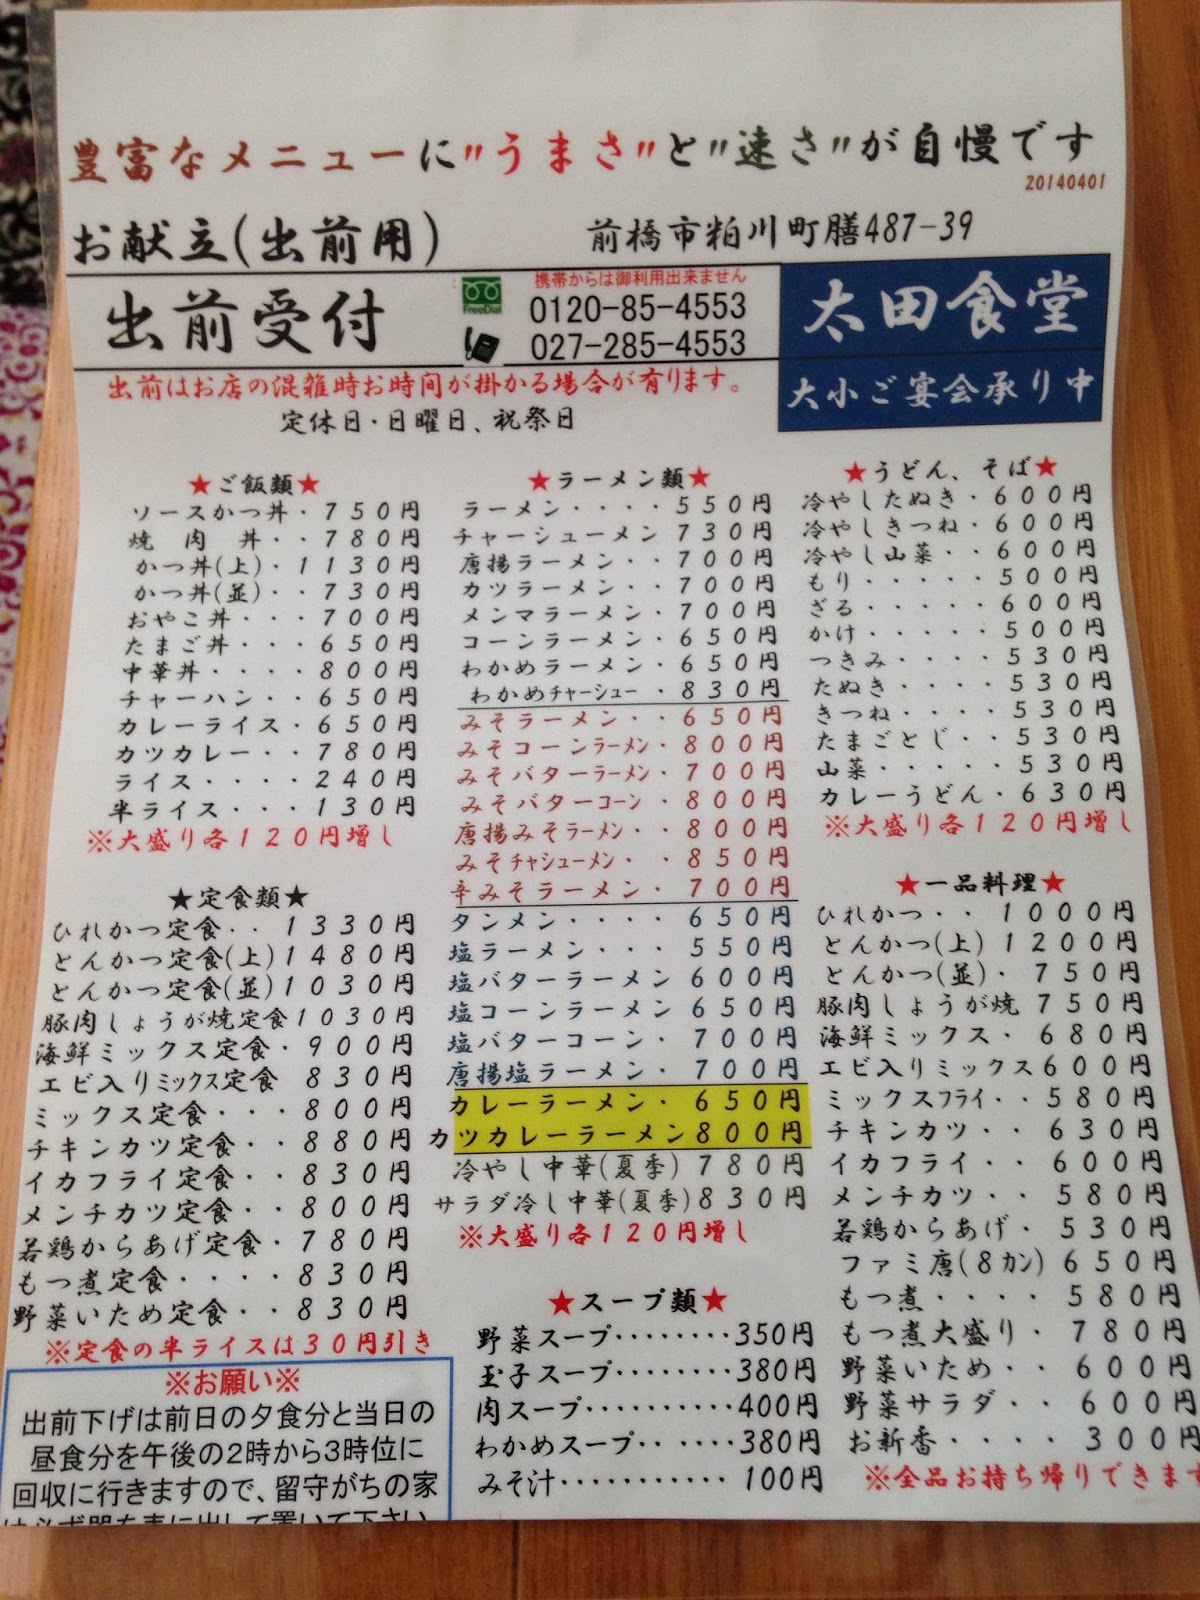 豊富なメニューに"うまさ"と"速さ"が自慢です
20140401
お献立(出前用)
前橋市粕川町膳487-39
出前受付
FreeDial
携帯からは御利用出来ません
0120-85-4553
027-285-4553
太田食堂
大小ご宴会承り中
出前はお店の混雑時お時間が掛かる場合が有ります。
定休日・日曜日、祝祭日
★ご飯類★
ソースかつ丼・７５０円
焼肉丼・・７８０円
かつ丼(上)・１１３０円
かつ丼(並)・・７３０円
おやこ丼・・・７００円
たまご丼・・・６５０円
中華丼・・・・８００円
チャーハン・・６５０円
カレーライス・６５０円
カツカレー・・７８０円
ライス・・・・２４０円
半ライス・・・１３０円
※大盛り各１２０円増し
★定食類★
ひれかつ定食・・１３３０円
とんかつ定食(上)１４８０円
とんかつ定食(並)１０３０円
豚肉しょうが焼定食１０３０円
海鮮ミックス定食・９００円
エビ入りミックス定食 ８３０円
ミックス定食・・・８００円
チキンカツ定食・・８８０円
イカフライ定食・・８３０円
メンチカツ定食・・８００円
若鶏からあげ定食・７８０円
もつ煮定食・・・・８３０円
野菜いため定食・・８３０円
※定食の半ライスは３０円引き
※お願い※
出前下げは前日の夕食分と当日の
昼食分を午後の２時から３時位に
回収に行きますので、留守がちの家
は必ず門を表に出して置いて下さい
★ラーメン類★
ラーメン・・・・５５０円
チャーシューメン ７３０円
唐揚ラーメン・・７００円
カツラーメン・・７００円
メンマラーメン・７００円
コーンラーメン・６５０円
わかめラーメン・６５０円
わかめチャーシュー・８３０円
みそラーメン・・６５０円
みそコーンラーメン・８００円
みそバターラーメン・７００円
みそバターコーン・８００円
唐揚みそラーメン・・８００円
みそチャシューメン・・８５０円
辛みそラーメン・７００円
タンメン・・・・６５０円
塩ラーメン・・・５５０円
塩バターラーメン ６００円
塩コーンラーメン ６５０円
塩バターコーン・７００円
唐揚塩ラーメン・７００円
カレーラーメン・６５０円
カツカレーラーメン８００円
冷やし中華(夏季)７８０円
サラダ冷し中華(夏季)８３０円
※大盛り各１２０円増し
★スープ類★
野菜スープ・・・・・・・・350円
玉子スープ・・・・・・・・380円
肉スープ・・・・・・・・・・400円
わかめスープ・・・・・・・380円
みそ汁・・・・・・・・・・・100円
★うどん、そば★
冷やしたぬき・６００円
冷やしきつね・６００円
冷やし山菜・・６００円
もり・・・・・５００円
ざる・・・・・６００円
かけ・・・・・５００円
つきみ・・・・５３０円
たぬき・・・・５３０円
きつね・・・・５３０円
たまごとじ・・５３０円
山菜・・・・・５３０円
カレーうどん・６３０円
※大盛り各１２０円増し
★一品料理★
ひれかつ・・１０００円
とんかつ(上)１２００円
とんかつ(並)・７５０円
豚肉しょうが焼 ７５０円
海鮮ミックス・６８０円
エビ入りミックス６００円
ミックスフライ・・５８０円
チキンカツ・・６３０円
イカフライ・・６００円
メンチカツ・・５８０円
若鶏からあげ・５３０円
ファミ唐(８カン)６５０円
もつ煮・・・・５８０円
もつ煮大盛り・７８０円
野菜いため・・６００円
野菜サラダ・・６００円
お新香・・・・３００円
※全品お持ち帰りできます